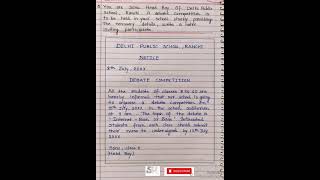 You are Sonu Head Boy of Delhi Public
School, Ranchi. A debate competition is
to be held in your school shortly providing
the necessary details, write a notice
inviting participants.
DELHI PUBLIC SCHOOL, RANCHI
NOTICE
8th July, 20XX
DEBATE COMPETITION
All the students of classes to are
hereby informed that our school is going
to organise a debate competition on
15th July, 20XX in the school auditorium
at 9 am. The topic of the debate is
'Internet - Boon or Bane'. Interested
students from each class should submit
their name to undersigned by 12th July
20XX.
Sonu, class X
(Head Boy)
SUBSCRIBE